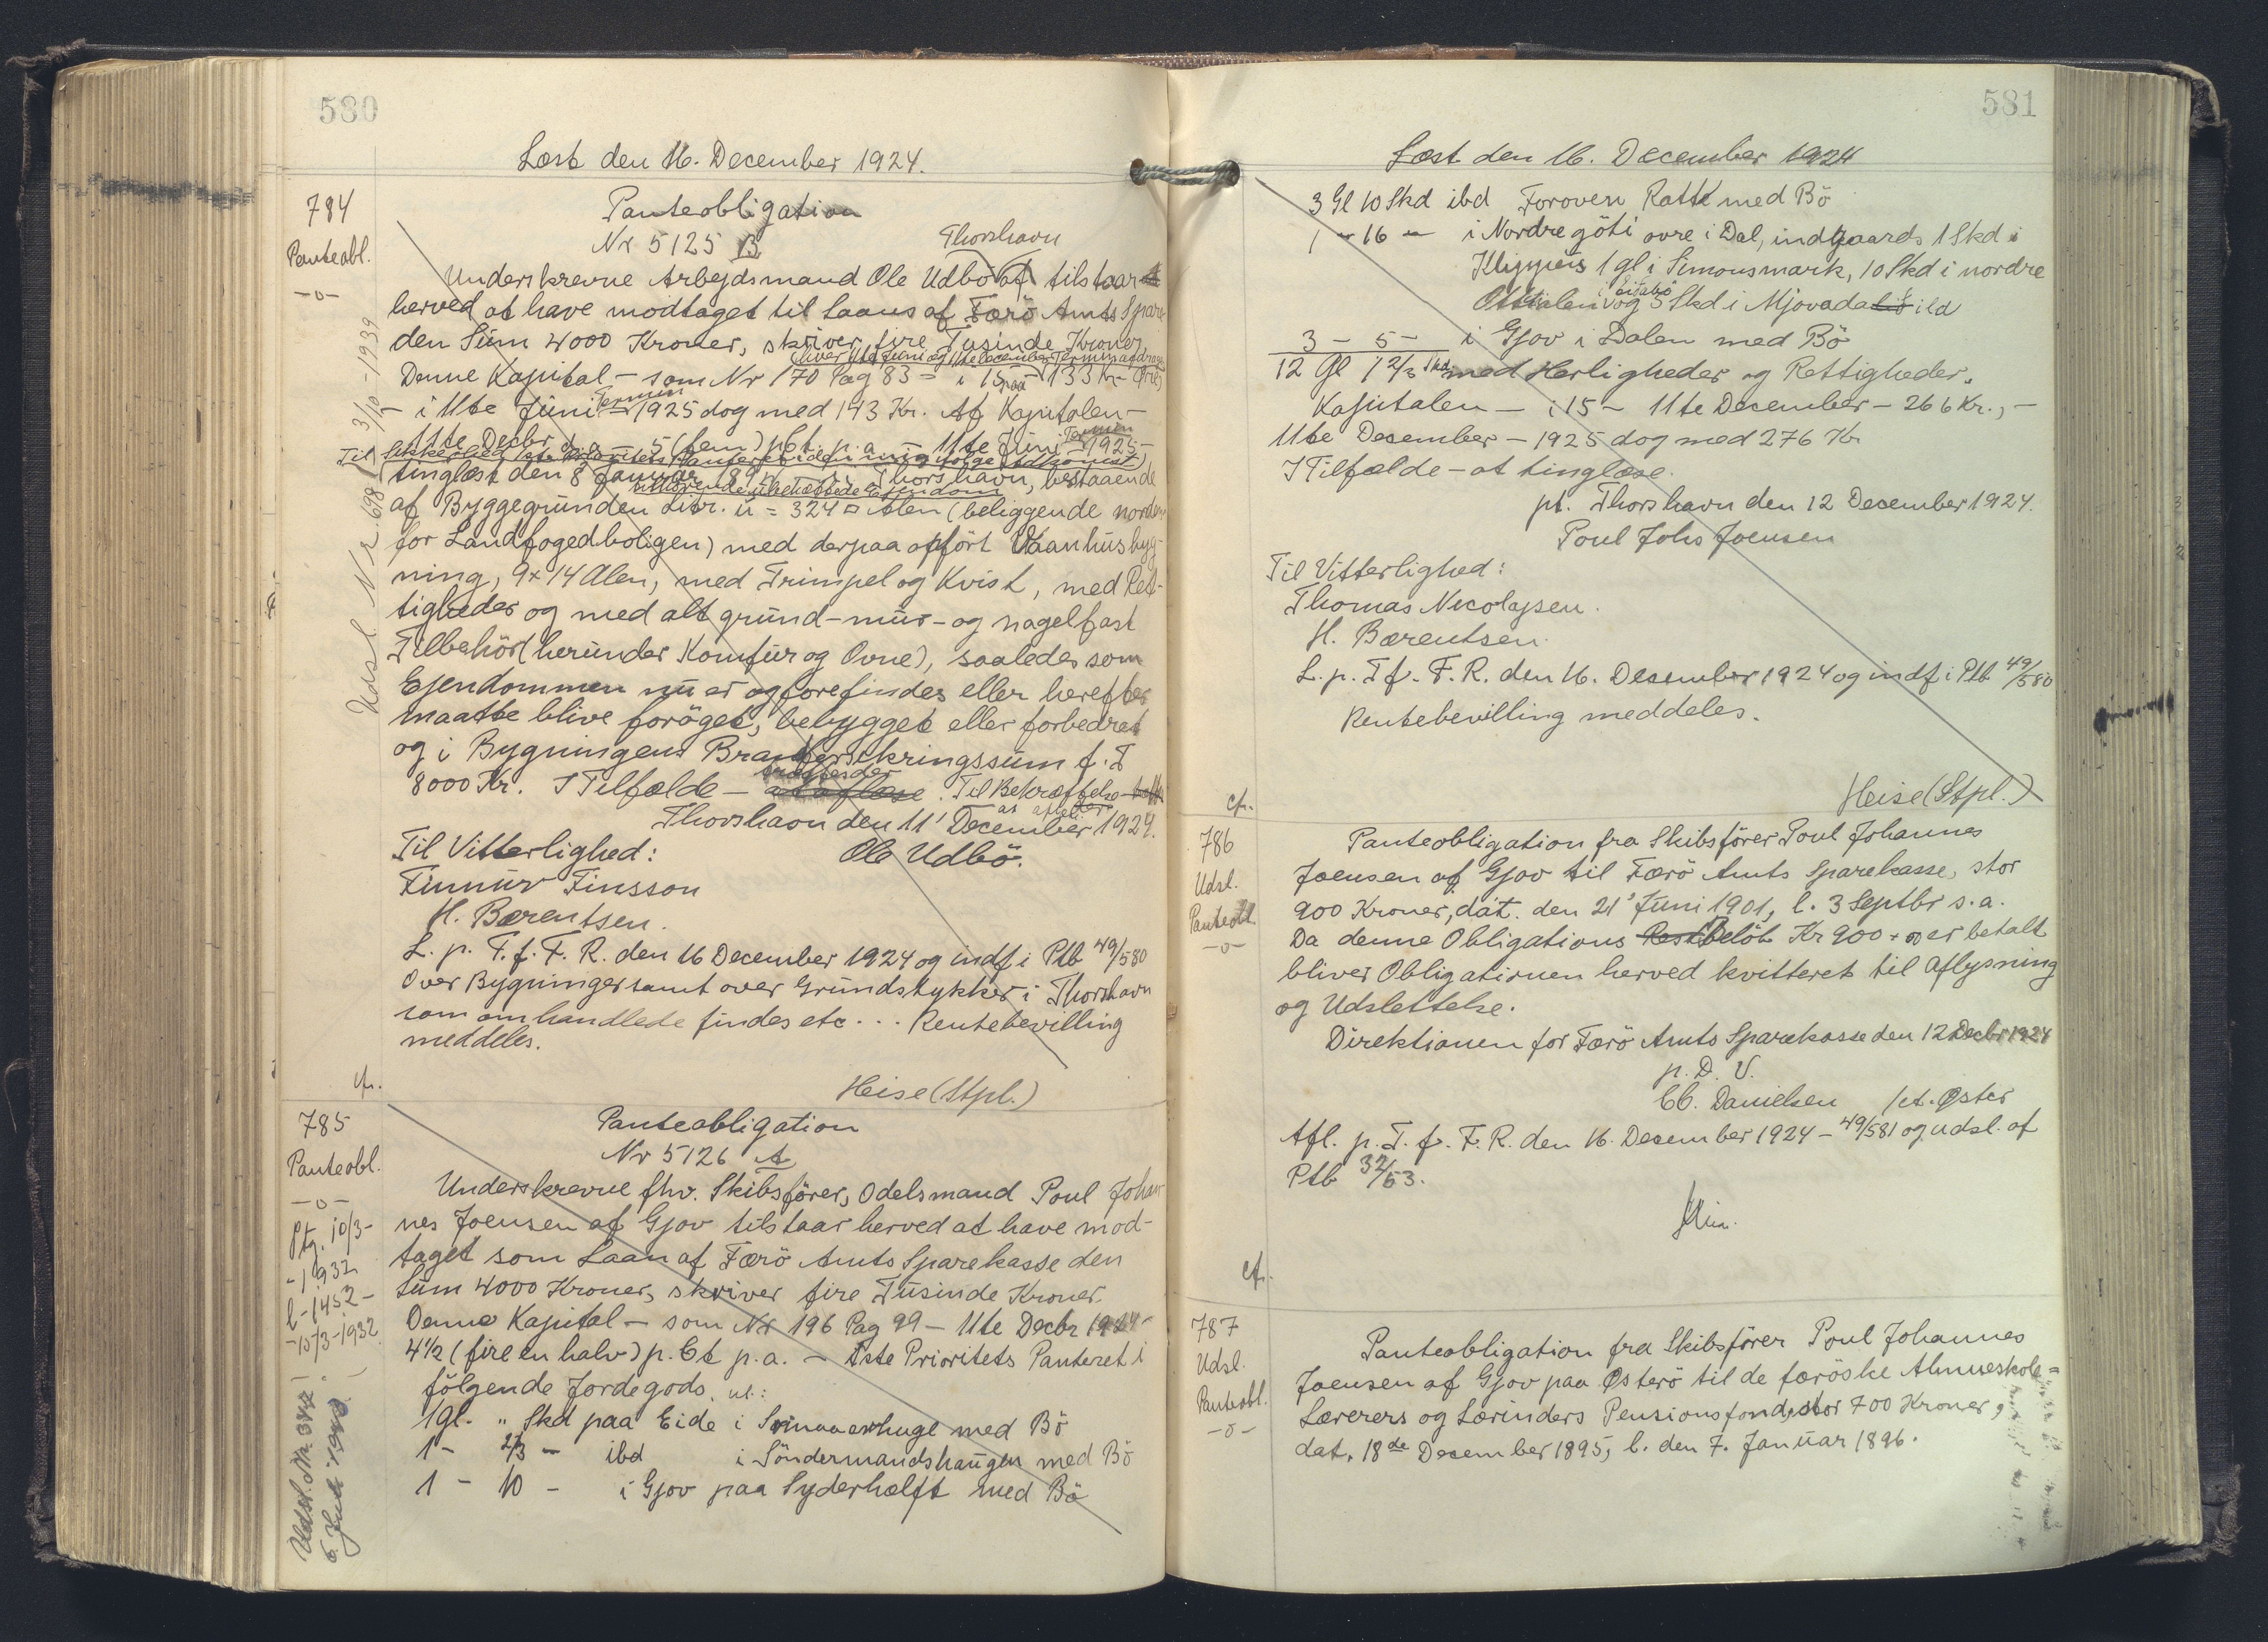 580
Læst den 16. December 1924.
784
Panteobl.
-o-
Udsl. Nr 698 3/10 - 1939
Panteobligation
Nr 5125 B
Thorshavn
Underskrevne Arbejdsmand Ole Udbö af tilstaar
herved at have modtaget til Laans af Færö Amts Spare
den Sum 4000 Kroner, skriver fire Tusinde Kroner,
hver 11te Juni og 11te December Termin afdrages
Denne Kapital - som Nr 170 Pag 83 - i 15 paa 133 Kr
Termin
- i 11te Juni - 1925 dog med 143 Kr. Af Kapitalen -
Termin
11te Decbr d. a. - 5 (fem) pCt. p. a. - 11te Juni - 1925 -
Til Sikkerhed 1ste Prioritets Panteret i min ifølge Adkomst
tinglæst den 8 Januar Thorshavn, bestaaende
tilhørende ubehæftede Ejendom
af Byggegrunden Litr. ü = 324 □ Alen (beliggende norden
for Landfogedboligen) med derpaa opfört Vaanhusbyg-
ning, 9 x 14 Alen, med Trimpel og Kvist, med Ret-
tigheder og med alt grund-mur- og nagelfast
Tilbehör (herunder Komfur og Ovne), saaledes som
Ejendommen nu er og forefindes eller herefter
maatte blive foröget, bebygget eller forbedret
og i Bygningens Brandforsikringssum f. T
8000 Kr. I Tilfælde - at aflæse. Til Bekræftelse
Thorshavn den 11' December 1924.
Til Vitterlighed: Ole Udbö.
Finnur Finsson
H. Bærentsen.
L. p. T. f. F. R. den 16 December 1924 og indf i Ptb 49/580
Over Bygninger samt over Grundstykker i Thorshavn
som omhandlede findes etc... Rentebevilling
meddeles.
cfr.
Heise (Stpl.)
785
Panteobl.
-o-
Ptg. 10/3-
-1932
l-1452-
-15/3-1932
6. Juli 1948.
Panteobligation
Nr 5126 A
Underskrevne fhv. Skibsförer, Odelsmand Poul Johan
nes Joensen af Gjov tilstaar herved at have mod-
taget som Laan af Færö Amts Sparekasse den
Sum 4000 Kroner, skriver fire Tusinde Kroner.
Denne Kapital - som Nr 196 Pag 99 - 11te Decbr 1924 -
4½ (fire en halv) p. Ct p. a. - 1ste Prioritets Panteret i
fölgende Jordegods, nl.:
1 Gl. " Skd paa Eide i med Bö
1 - 2/3 - ibd i Söndermandshaugen med Bö
1 - 10 - i Gjov paa Syderhalft med Bö
581
Læst den 16. December 1924
3 Gl 10 Skd ibd Foroven Ratte med Bö
1 - 16 - i Nordregöti ovre i Dal, indgaards 1 Skd i
Klippers 1 gl i Simonsmark, 10 Skd i nordre
og 5 Skd i
3 - 5 - i Gjov i Dalen med Bö
12 Gl 1 2/3 Skd med Herligheder og Rettigheder.
Kapitalen - i 15 - 11te December - 266 Kr., -
11te December - 1925 dog med 276 Kr
I Tilfælde - at tinglæse.
pt. Thorshavn den 12 December 1924.
Poul Johs Joensen
Til Vitterlighed:
Thomas Nicolajsen.
H. Bærentsen.
L. p. T f. F. R. den 16. December 1924 og indf i Ptb 49/580
Rentebevilling meddeles.
Heise (Stpl.)
cfr.
786
Udsl.
Panteobl.
-o-
Panteobligation fra Skibsförer Poul Johannes
Joensen af Gjov til Færö Amts Sparekasse, stor
900 Kroner, dat. den 21' Juni 1901, l. 3 Septbr s. a.
Da denne Obligations Restbelöb Kr 900 + er betalt
bliver Obligationen herved kvitteret til Aflysning
og Udslettelse.
Direktionen for Færö Amts Sparekasse den 12 Decbr 1924
p. D. V.
CC. Danielsen /ct. Øster
Afl. p. T. f. F. R. den 16. December 1924 - 49/581 og udsl. af
Ptb 32/53.
cfr.
787
Udsl.
Panteobl.
-o-
Panteobligation fra Skibsförer Poul Johannes
Joensen af Gjov paa Österö til de færöske Almueskole=
Lærerers og Lærinders Pensionsfond, stor 700 Kroner,
dat. 18de December 1895, l. den 7. Januar 1896.